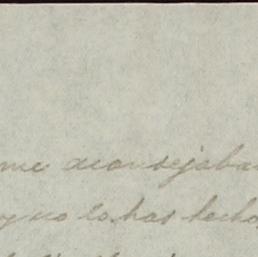 me aconsejaba
y no lo has hecho